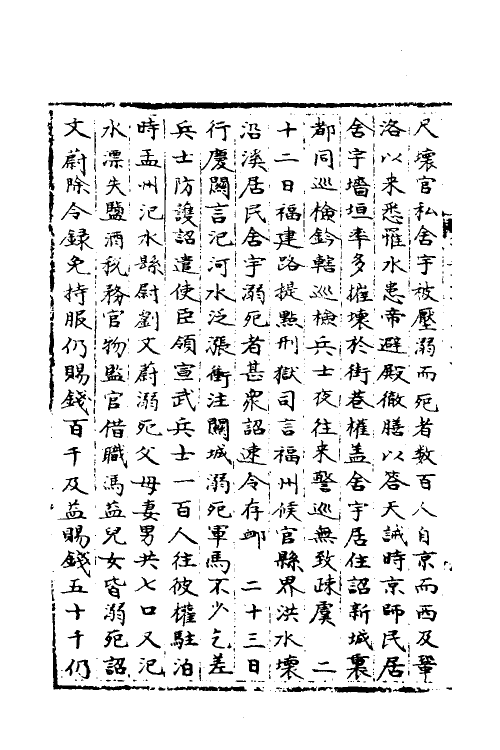 尺壞官私舍宇被壓溺而死者數百人自京而西及鞏
洛以来悉罹水患帝避殿徹膳以答天誡時京師民居
舍宇墻垣率多摧壞於街巷權盖舍宇居住詔新城裏
都同巡檢鈐轄巡檢兵士夜往来警巡無致疎虞　二
十二日福建路提點刑獄司言福州候官縣界洪水壞
沿溪居民舍宇溺死者甚衆詔速令存䘏　二十三日
行慶關言汜河水泛漲衝注關城溺死軍馬不少乞差
兵士防護詔遣使臣領宣武兵士一百人往彼權駐泊
時孟州汜水縣尉劉文蔚溺死父母妻男共七口又汜
水漂失鹽酒稅務官物監官借職馮益兒女皆溺死詔
文蔚除令録免持服仍賜錢百千及益賜錢五十千仍